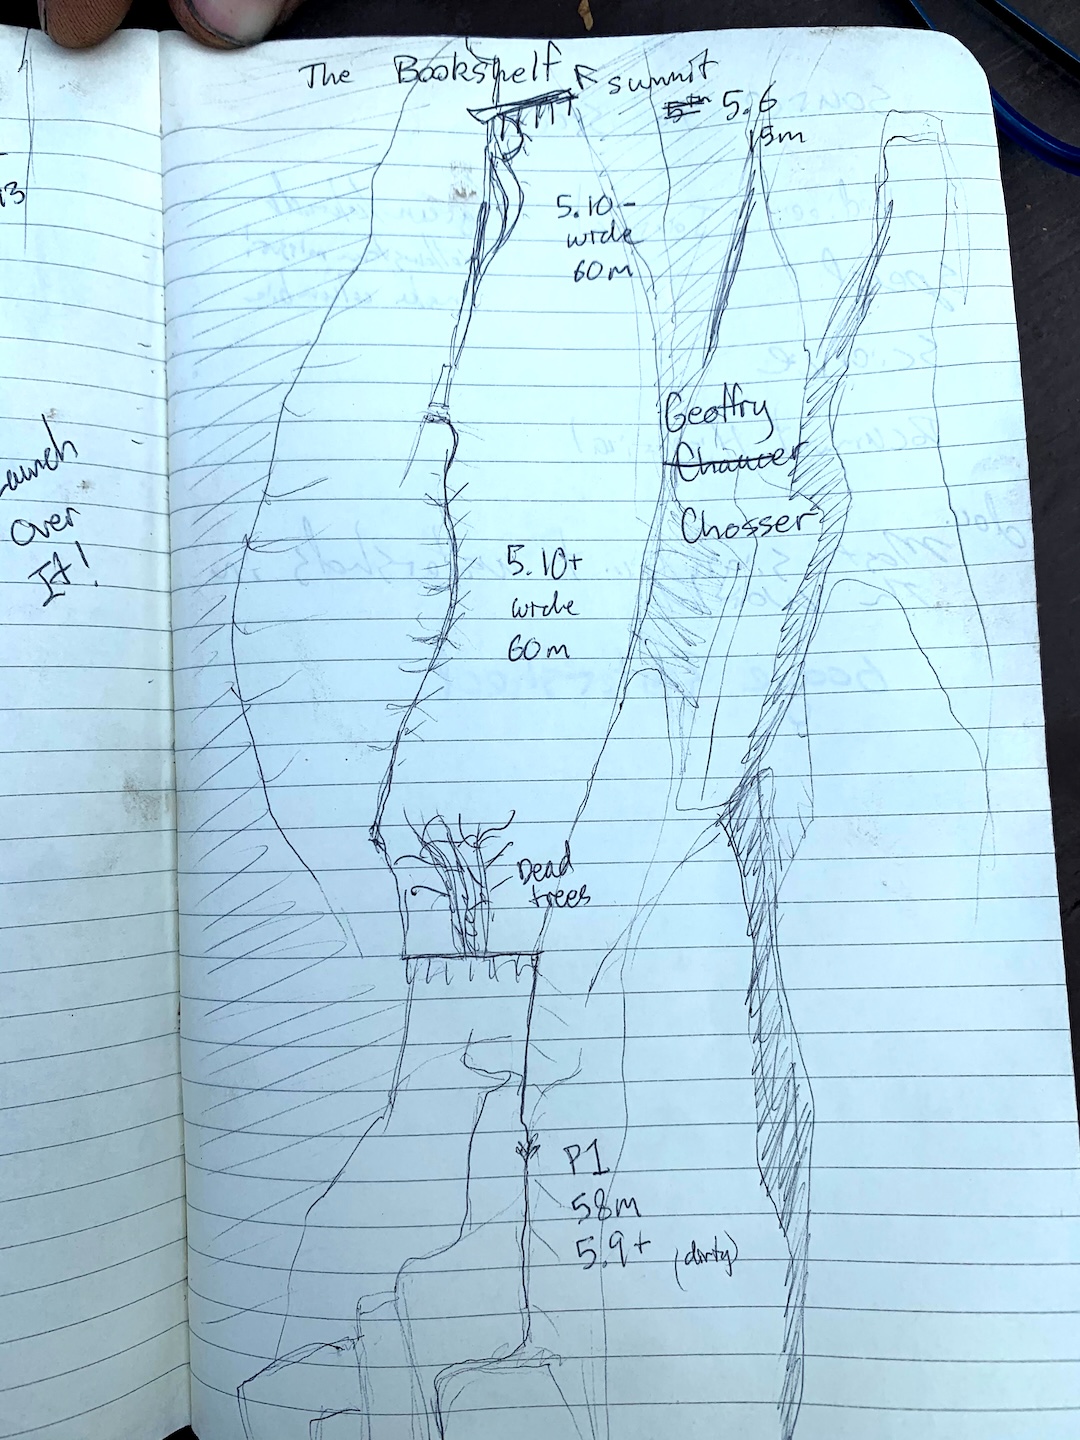 The Bookshelf
summit
5.6
15m
13
5.10-
wide
60m
Geoffry
Chaucer
Chosser
Launch
Over
It!
5.10+
wide
60m
Dead
trees
P1
58m
5.9+ (dirty)